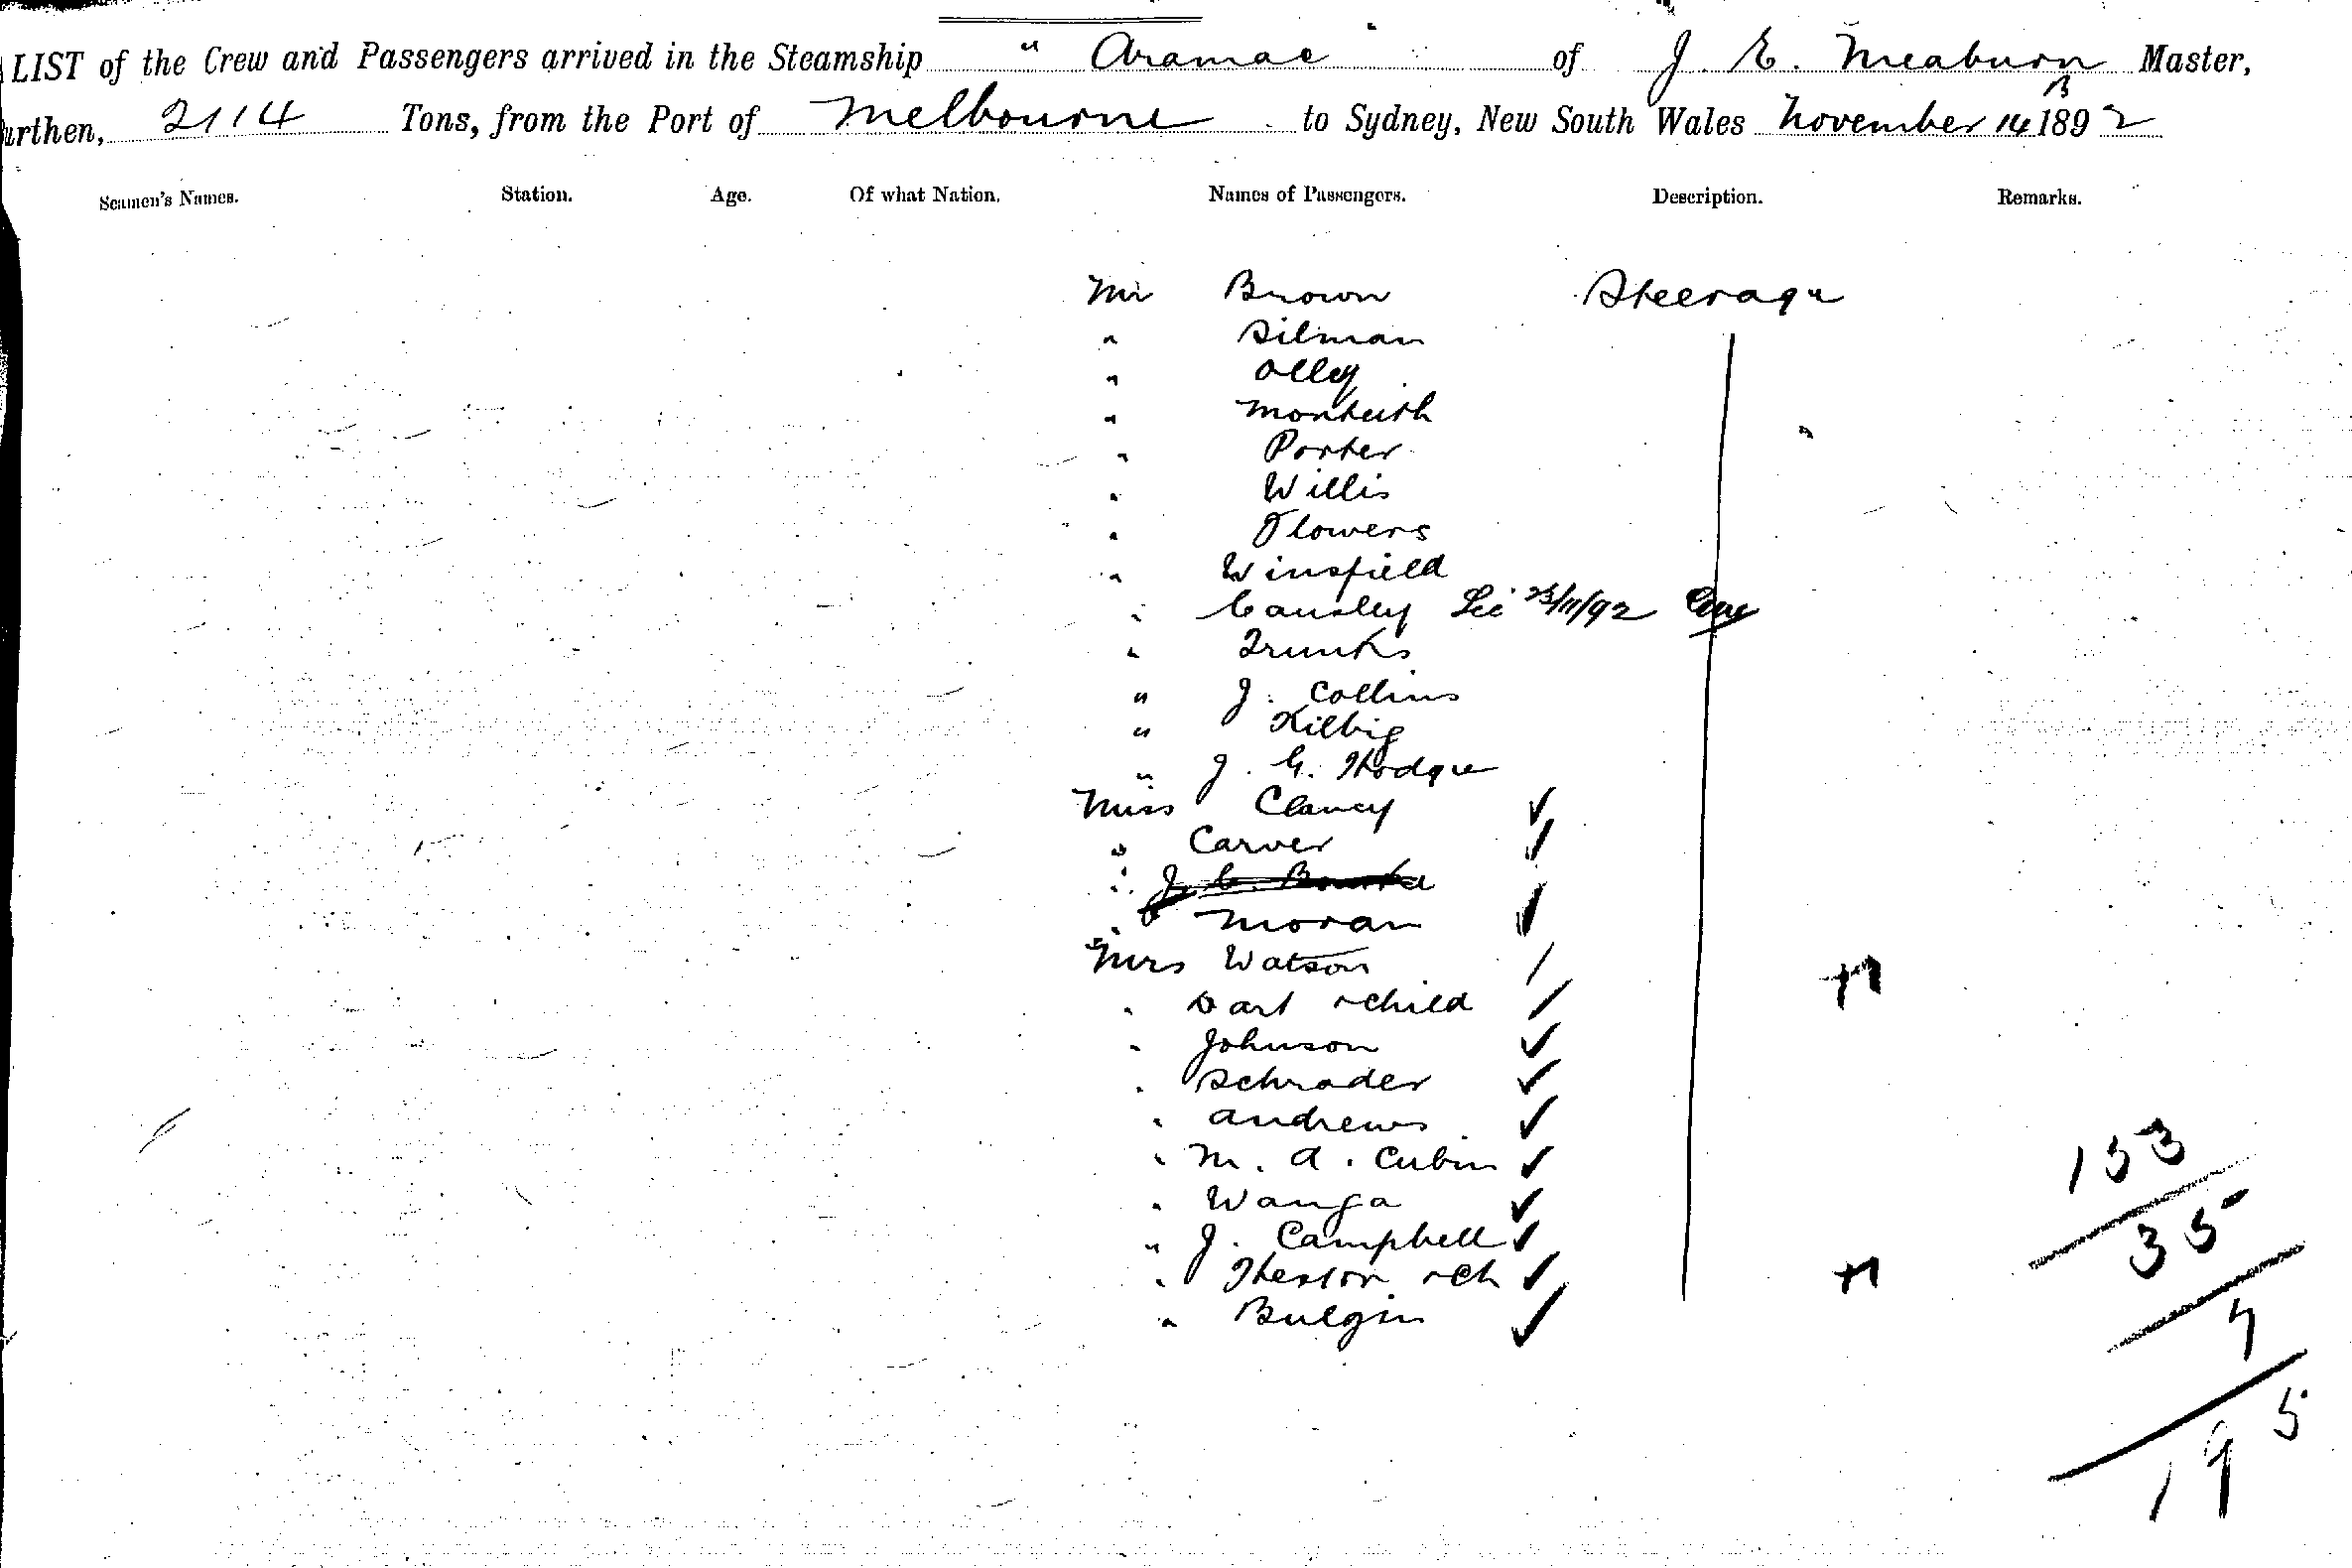 LIST of the Crew and Passengers arrived in the Steamship "Aramac" of J. E. Meaburn Master,
urthen, 2114 Tons, from the Port of Melbourne to Sydney, New South Wales November 14 1892
Seamen's Names. Station. Age. Of what Nation. Names of Passengers. Description. Remarks.
Mr Brown Steerage
" Silman
" Olley
" Monteith
" Porter
" Willis
" Flowers
" Winsfield
" Causley 23/11/92
" Trunks
" J. Collins
" Kilbig
" J. G. Hodge
Miss Clancy ✓
" Carver ✓
" Moran ✓
Mrs Watson / +1
" Dart & child /
" Johnson ✓
" Schrader ✓
" Andrews ✓
" M. A. Cubin ✓
" Wanga ✓
" J. Campbell ✓
" Heston & Ch ✓ +1
" Bulgin ✓
153
35
7
195